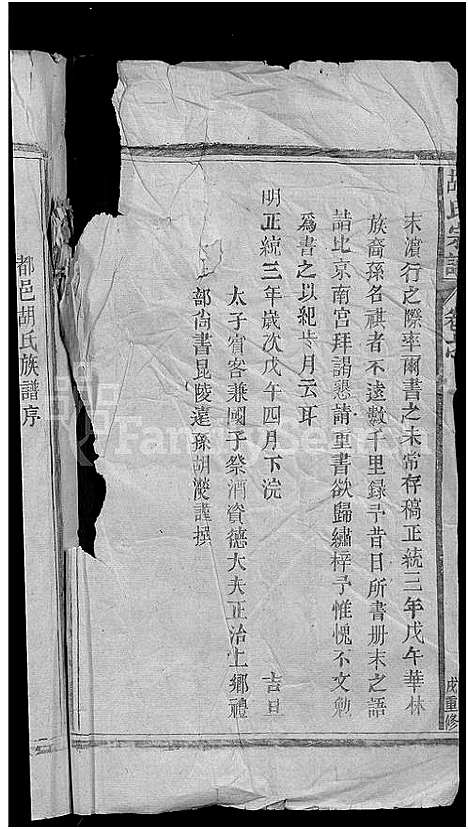 胡氏宗譜 卷首
戌重修
末濵行之際率爾書之未常存稿正統三年戊午華林
族裔孫名祺者不遠數千里錄予昔日所書册末之語
詣北京南宮拜謁懇請重書欲歸繡梓予惟愧不文勉
爲書之以紀歲月云耳
明正統三年歲次戊午四月下浣 吉旦
太子賓客兼國子祭酒資德大夫正治上鄉禮
部尙書昆陵遠孫胡濙謹撰
都邑胡氏族譜序
FamilySearch